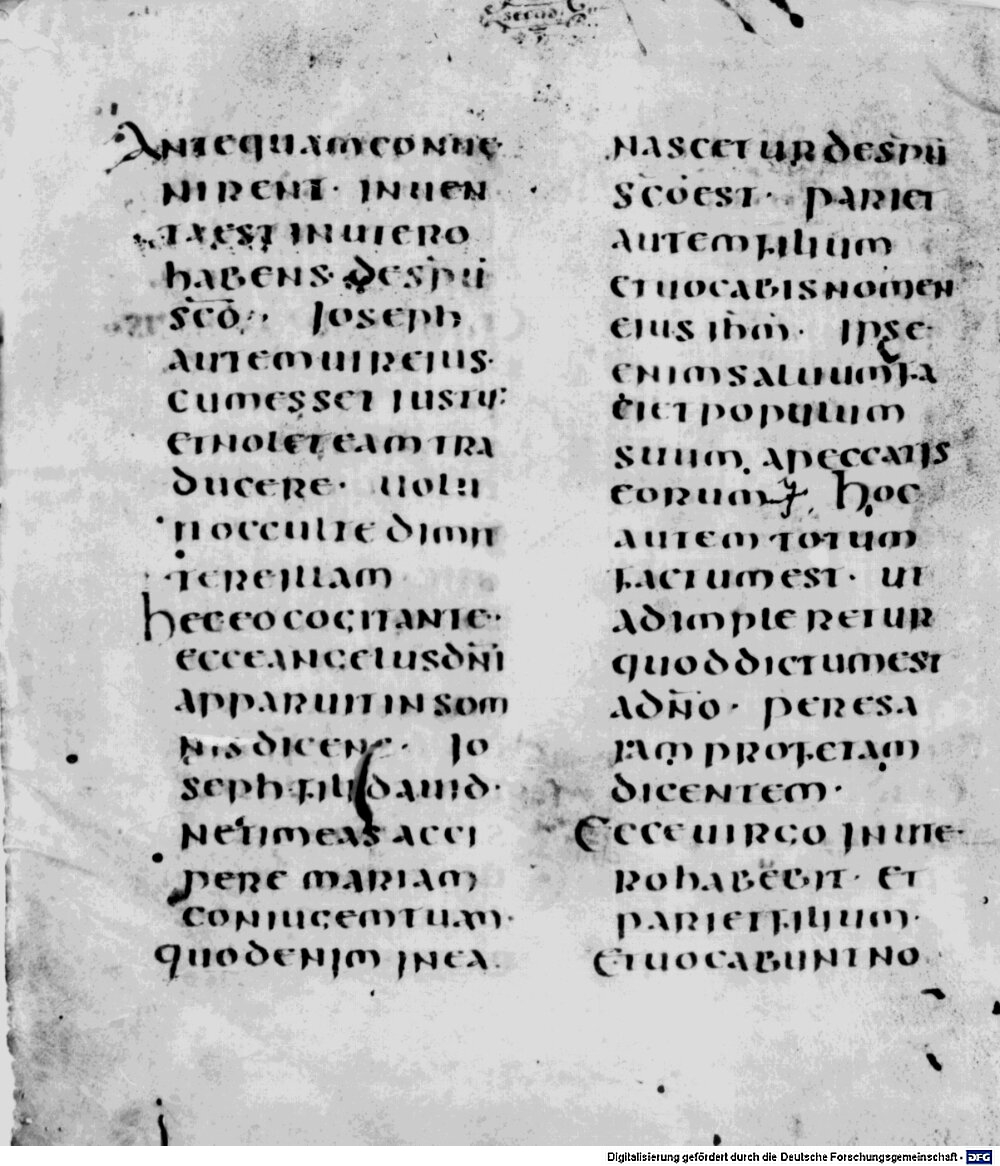 secund
ANTEQUAMCONUE
NIRENT· INUEN
TAEST INUTERO
hABENS· DESPŪ
SC̄Ō· JOSEPh
AUTEMUIREIUS·
CUMESSET IUSTU·
ETNOLETEAMTRA
DUCERE· UOLU
IT OCCULTE DIMIT
TEREILLAM
hECEOCOGITANTE·
ECCEANGELUSDN̄I
APPARUITINSOM
NIS DICENS· JO
SEPh FILI DAUID·
NETIMEAS ACCI
PERE MARIAM
CONIUGEMTUAM·
QUODENIM INEA
NASCETURDESPŪ
SC̄OEST· PARIET
AUTEMFILIUM
ETUOCABISNOMEN
EIUS IhM̄· IPSE·
ENIMSALUUMFA
CIETPOPULUM
SUUM APECCATIS
EORUM hOC
AUTEM TOTUM
FACTUMEST· UT
ADIMPLERETUR
QUODDICTUMEST
ADN̄O· PERESA
IAM PROFETAM
DICENTEM·
ECCEUIRGO INUTE·
ROhABEBIT· ET
PARIETFILIUM·
ETUOCABUNTNO
Digitalisierung gefördert durch die Deutsche Forschungsgemeinschaft - DFG